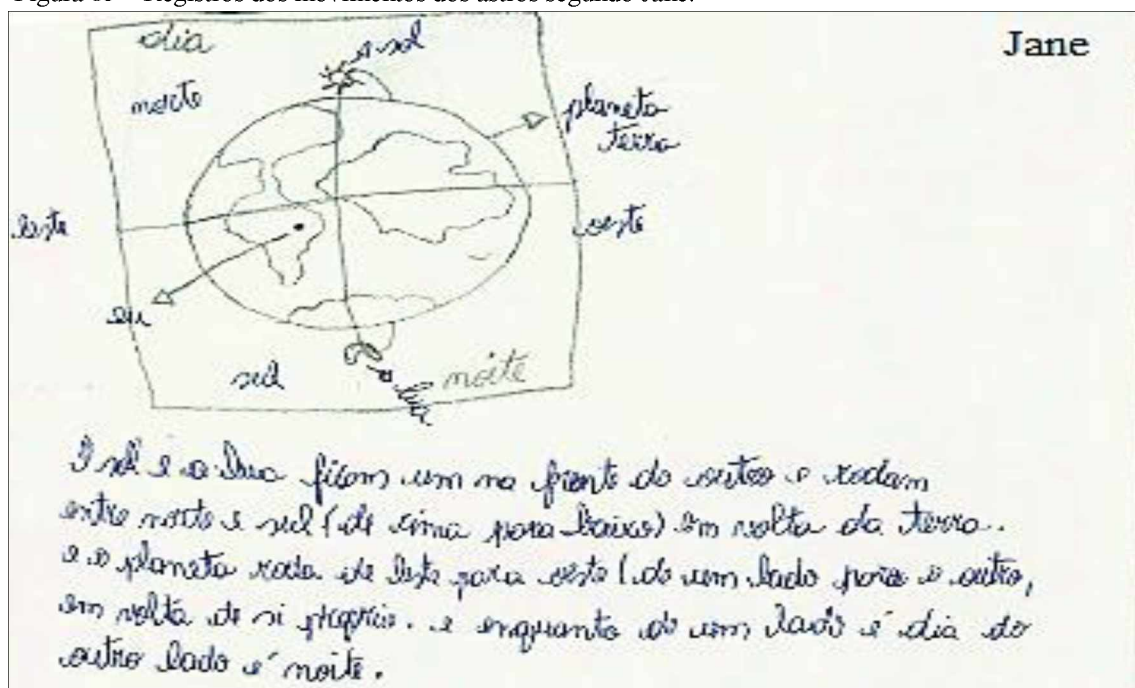 Jane
dia
sol
norte
planeta
terra
leste
oeste
eu
sul
noite
lua
O sol e a lua ficam um na frente do outro e rodam
entre norte e sul (de cima para baixo) em volta da terra.
e o planeta roda de leste para oeste (de um lado para o outro,
em volta de si próprio. e enquanto de um lado é dia do
outro lado é noite.